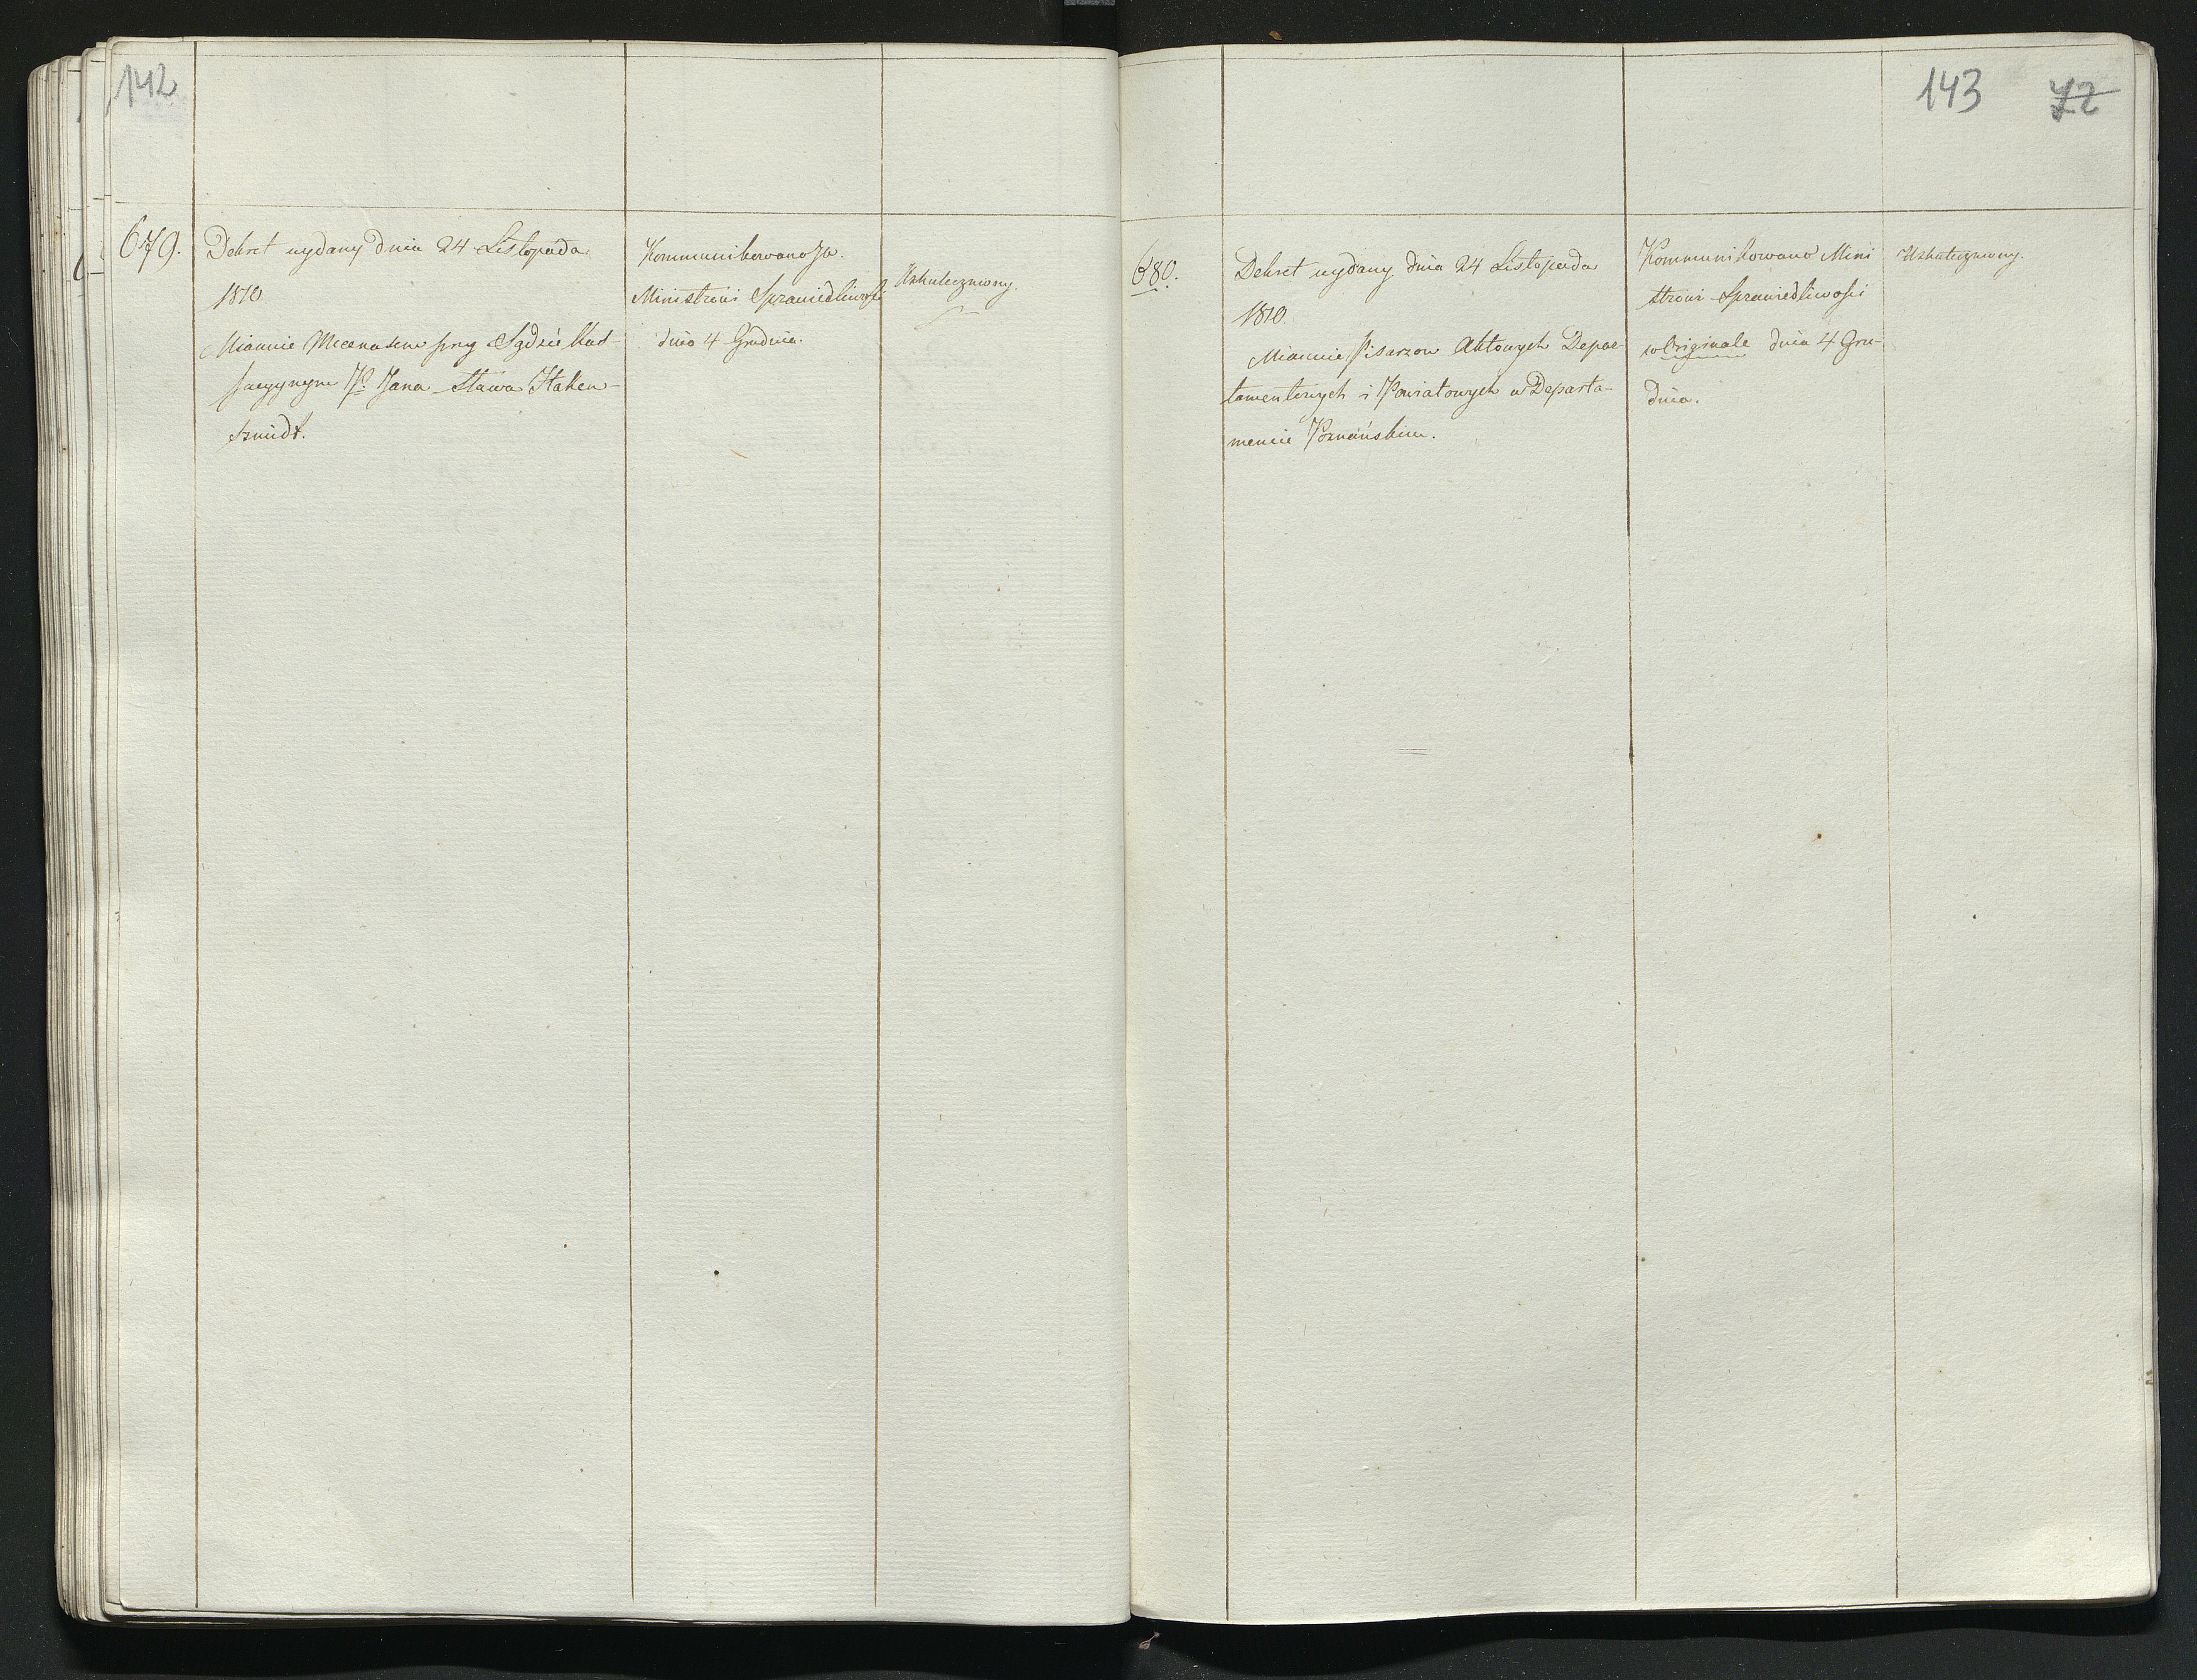 142
679.
Dekret wydany dnia 24 Listopada
1810
Mianuie Mecenasem przy Sądzie Kas-
sacyynym JP. Jana Stawa Haken-
szmidt.
Kommunikowano Jo.
Ministrowi Sprawiedliwośći
dnia 4 Grudnia.
Uskuteczniony.
143 72
680.
Dekret wydany dnia 24 Listopada
1810.
Mianuie Pisarzow Aktowych Depar-
tamentowych i Powiatowych w Departa-
mencie Poznańskim.
Kommunikowano Mini
strowi Sprawiedliwości
w Originale dnia 4 Gru-
dnia.
Uskuteczniony.